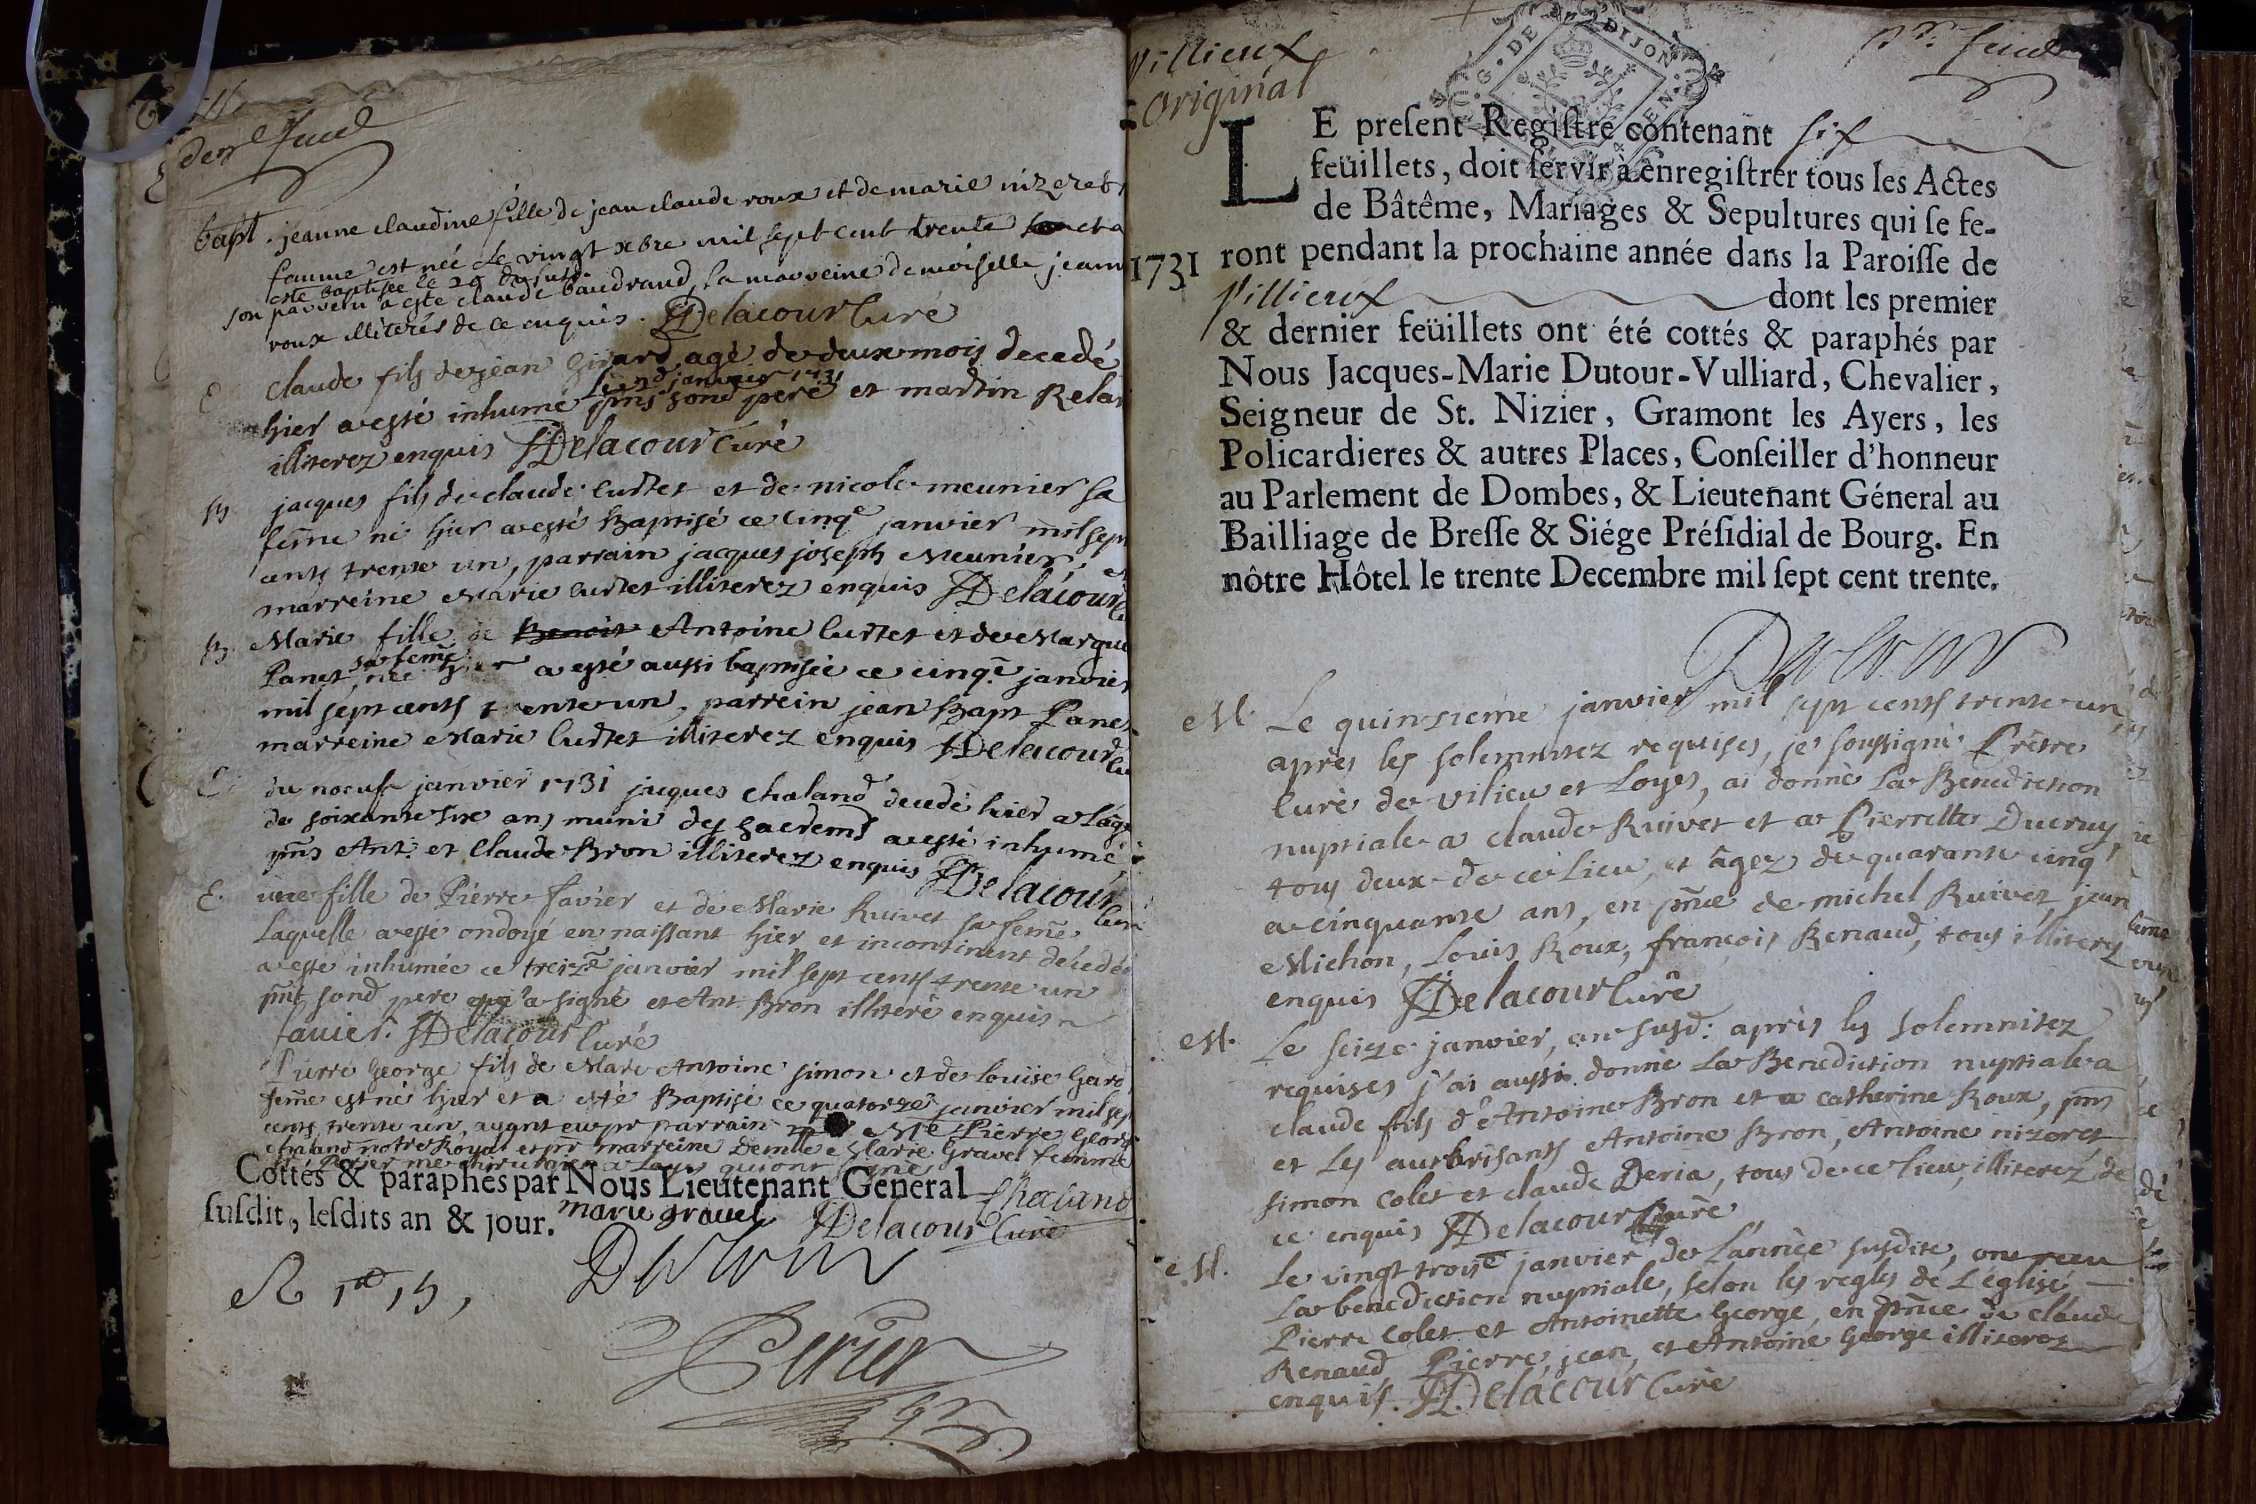 dern feuil
bapt. jeanne claudine fille de jean claude roux et de marie nizeret
femme est née le vingt xbre mil sept cent trente et a
esté baptisée le 20 du susd
son parrein a esté claude baudrand, la marreine demoiselle jeann
roux illiterés de ce enquis. Delacour Curé
E claude fils de jean girard agé de deux mois decedé
le 2d janvier 1731
hier a esté inhumé pnts sond pere et martin Rela
illiterez enquis Delacour Curé
B jacques fils de claude Curtet et de nicole meunier sa
feme né hier a esté Baptisé ce cinqe janvier mil sept
cents trente un, parrain jacques joseph Meunier, et
marreine Marie Curtet illiterez enquis Delacour
B Marie fille de Benoit Antoine Curtet et de Margue
sa feme
Panet, née hier a esté aussi baptisée ce cinqe janvier
mil sept cents trente un, parrein jean Bapt Panet
marreine Marie Curtet illiterez enquis Delacour
E du noeuf janvier 1731 jacques chaland decedé hier a l'age
de soixante six ans muni des sacremts a esté inhumé
pnts Ant. et Claude Bron illiterez enquis Delacour
Curé
E. une fille de Pierre favier et de Marie Ruivet sa feme
laquelle a esté ondoyé en naissant hier et incontinent decedée
a esté inhumée ce treize janvier mil sept cents trente un
pnt sond pere qui a signé et Ant Bron illiteré enquis
favier. Delacour Curé
Pierre George fils de Marc Antoine simon et de Louise Gard
feme est né hier et a esté Baptisé ce quatorze janvier mil sept
cents trente un, ayant eu pr parrain Me Pierre George
chaland notre Royal et pr marreine Demlle Marie Gravel femme
Perier me chirurgien a Loyes qui ont signé
Cottés & paraphés par Nous Lieutenant Géneral Chaland
susdit, lesdits an & jour. marie gravel Delacour Curé
Perier
Villieux
Original
pr. feuil
G. DE DIJON
LE present Registre contenant six
feüillets, doit servir à enregistrer tous les Actes
de Bâtême, Mariages & Sepultures qui se fe-
1731 ront pendant la prochaine année dans la Paroisse de
Villieux dont les premier
& dernier feüillets ont été cottés & paraphés par
Nous Jacques-Marie Dutour-Vulliard, Chevalier,
Seigneur de St. Nizier, Gramont les Ayers, les
Policardieres & autres Places, Conseiller d'honneur
au Parlement de Dombes, & Lieutenant Géneral au
Bailliage de Bresse & Siége Présidial de Bourg. En
nôtre Hôtel le trente Decembre mil sept cent trente.
M. Le quinzieme janvier mil sept cents trente un,
après les solemnitez requises, je soussigné Prêtre
Curé de vilieu et Loyes, ai donné la Benediction
nuptiale a claude Ruivet et a Pierrette Ducruy,
tous deux de ce lieu, et âgez de quarante cinq
a cinquante ans, en pnce de michel Ruivet, jean
Michon, Louis Roux, françois Renaud, tous illiterez
enquis Delacour Curé
M. Le seize janvier, an susd: après les solemnitez
requises j'ai aussi donné la Benediction nuptiale a
claude fils d'Antoine Bron et a catherine Roux, pnts
et les authorisants Antoine Bron, Antoine nizeret
simon colet et claude Deria, tous de ce lieu, illiterez de
ce enquis Delacour Curé
M. Le vingt troise janvier de l'année susdite, ont receu
la benediction nuptiale, selon les regles de L'église
Pierre Colet et Antoinette George, en pnce de claude
Renaud, Pierre, jean, et Antoine George illiterez
enquis. Delacour Curé